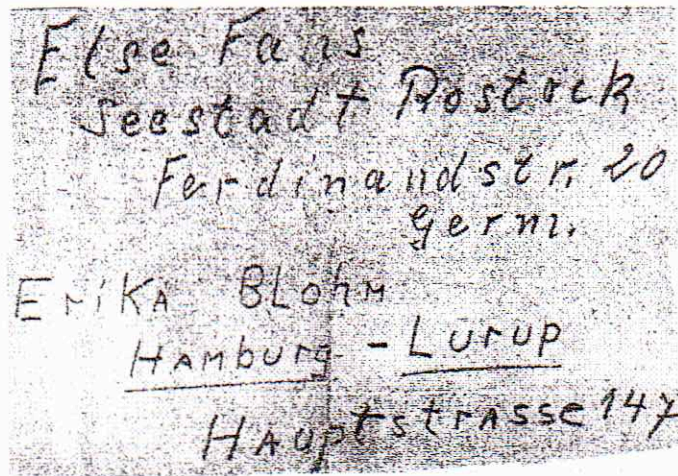 Else Fans
Seestadt Rostock
Ferdinandstr. 20
Germ.
Erika Blohm
Hamburg - Lurup
Hauptstrasse 147